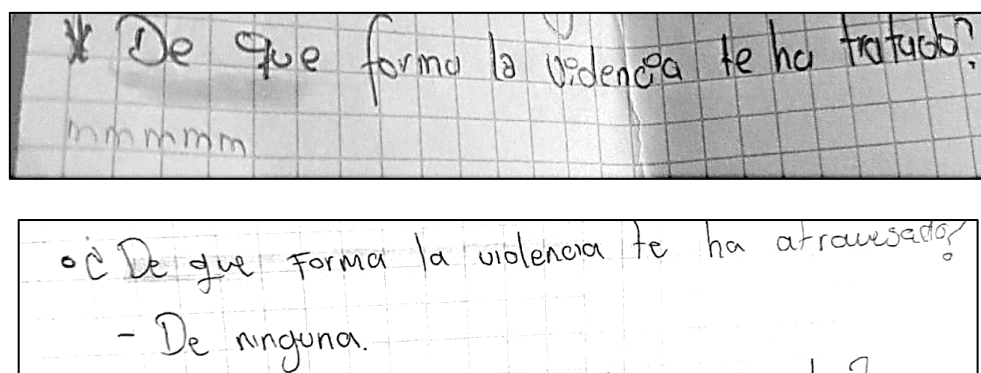 * De que forma la videncia te ha tratado?
mmmmm
• ¿De que Forma la violencia te ha atravesado?
- De ninguna.